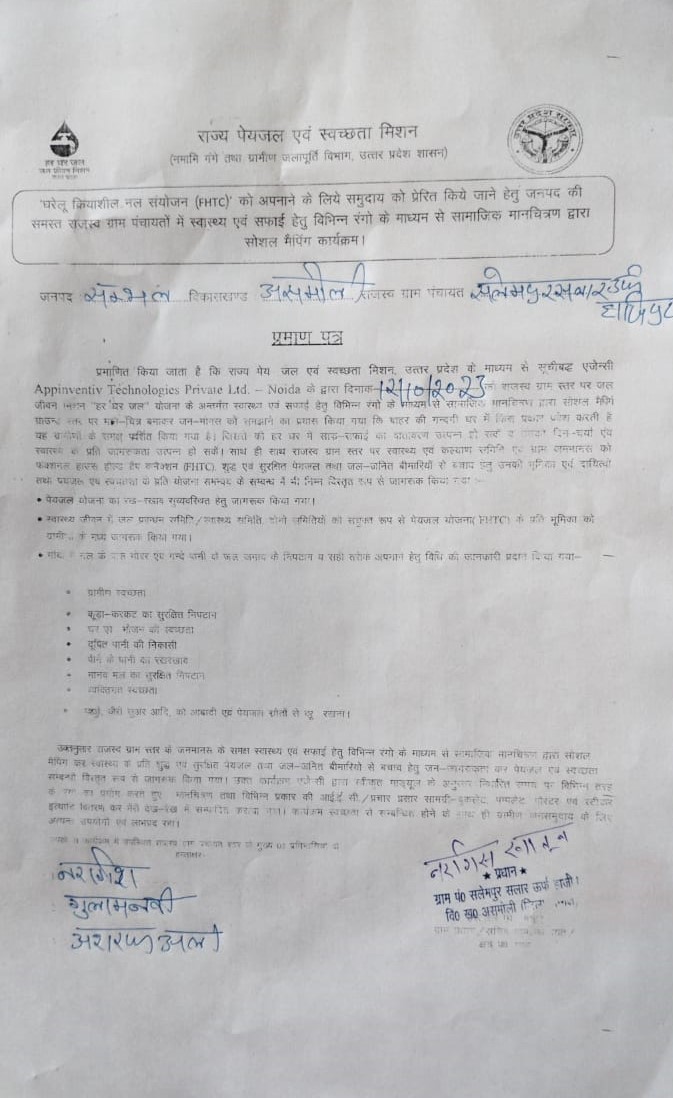 हर घर जल
जल जीवन मिशन
उत्तर प्रदेश सरकार
राज्य पेयजल एवं स्वच्छता मिशन
(नमामि गंगे तथा ग्रामीण जलापूर्ति विभाग, उत्तर प्रदेश शासन)
'घरेलू क्रियाशील नल संयोजन (FHTC)' को अपनाने के लिये समुदाय को प्रेरित किये जाने हेतु जनपद की
समस्त राजस्व ग्राम पंचायतों में स्वास्थ्य एवं सफाई हेतु विभिन्न रंगो के माध्यम से सामाजिक मानचित्रण द्वारा
सोशल मैपिंग कार्यक्रम।
जनपद सम्भल विकासखण्ड असमोली राजस्व ग्राम पंचायत सलेमपुर
प्रमाण पत्र
प्रमाणित किया जाता है कि राज्य पेय जल एवं स्वच्छता मिशन, उत्तर प्रदेश के माध्यम से सूचीबद्ध एजेन्सी
Appinventiv Technologies Private Ltd. – Noida के द्वारा दिनांक 12/10/2023 राजस्व ग्राम स्तर पर जल
जीवन मिशन "हर घर जल" योजना के अन्तर्गत स्वास्थ्य एवं सफाई हेतु विभिन्न रंगो के माध्यम से सामाजिक मानचित्रण द्वारा सोशल मैपिंग
ग्राउन्ड स्तर पर बनाकर जन-मानस को समझाने का प्रयास किया गया कि बाहर की गन्दगी घर में किस प्रकार प्रवेश करती है
यह ग्रामीणों के समक्ष प्रदर्शित किया गया है। जिससे की हर घर में साफ-सफाई का वातावरण उत्पन्न हो सके व दिन-चर्या एंव
स्वास्थ्य के प्रति जागरूकता उत्पन्न हो सकें। साथ ही साथ राजस्व ग्राम स्तर पर स्वास्थ्य एवं कल्याण समिति एवं ग्राम जनमानस को
(FHTC), शुद्ध एवं सुरक्षित पेयजल तथा जल-जनित बीमारियों से बचाव हेतु उनकी भूमिका एवं दायित्वों
तथा पेयजल एवं स्वच्छता के प्रति योजना सम्बन्ध के सम्बन्ध में भी निम्न विस्तृत रूप से जागरूक किया गया :-
• पेयजल योजना का रख-रखाव सुव्यवस्थित हेतु जागरूक किया गया।
• स्वास्थ्य जीवन में जल प्रबन्धन समिति/स्वास्थ्य समिति, दोनो समितियों को संयुक्त रूप से पेयजल योजना(FHTC) के प्रति भूमिका को
ग्रामीणों के मध्य जागरूक किया गया।
• नल के पास गोबर एंव गन्दे पानी के जल जमाव के निपटान व सही तरीके अपनाने हेतु विधि की जानकारी प्रदान किया गया–
• ग्रामीण स्वच्छता
• कूड़ा-करकट का सुरक्षित निपटान
• घर एवं भोजन की स्वच्छता
• दूषित पानी की निकासी
• पीने के पानी का रखरखाव
• मानव मल का सुरक्षित निपटान
• व्यक्तिगत स्वच्छता
• जैसे सुअर आदि, को आबादी एवं पेयजल स्रोतों से दूर रखना।
उक्तनुसार राजस्व ग्राम स्तर के जनमानस के समक्ष स्वास्थ्य एवं सफाई हेतु विभिन्न रंगो के माध्यम से सामाजिक मानचित्रण द्वारा सोशल
मैपिंग कर स्वास्थ्य के प्रति शुद्ध एवं सुरक्षित पेयजल तथा जल-जनित बीमारियों से बचाव हेतु जन-जागरूकता कर पेयजल एंव स्वच्छता
सम्बन्धी विस्तृत रूप से जागरूक किया गया। उक्त कार्यक्रम एजेन्सी द्वारा स्वीकृत माड्यूल के अनुसार निर्धारित समय पर विभिन्न तरह
के रंग का प्रयोग करते हुए मानचित्रण तथा विभिन्न प्रकार की आई.ई.सी./प्रचार प्रसार सामग्री- पम्पलेट, पोस्टर एवं स्टीकर
इत्यादि वितरण कर मेरी देख-रेख में सम्पादित कराया गया। कार्यक्रम स्वच्छता से सम्बन्धित होने के साथ ही ग्रामीण जनसमुदाय के लिए
अत्यन्त उपयोगी एवं लाभप्रद रहा।
हस्ताक्षर
नरगिश
गुलाम नबी
अशरफ अली
नरगिस खातून
★ प्रधान ★
ग्राम पं0 सलेमपुर सलार ऊर्फ हाजी
वि0 ख0 असमोली